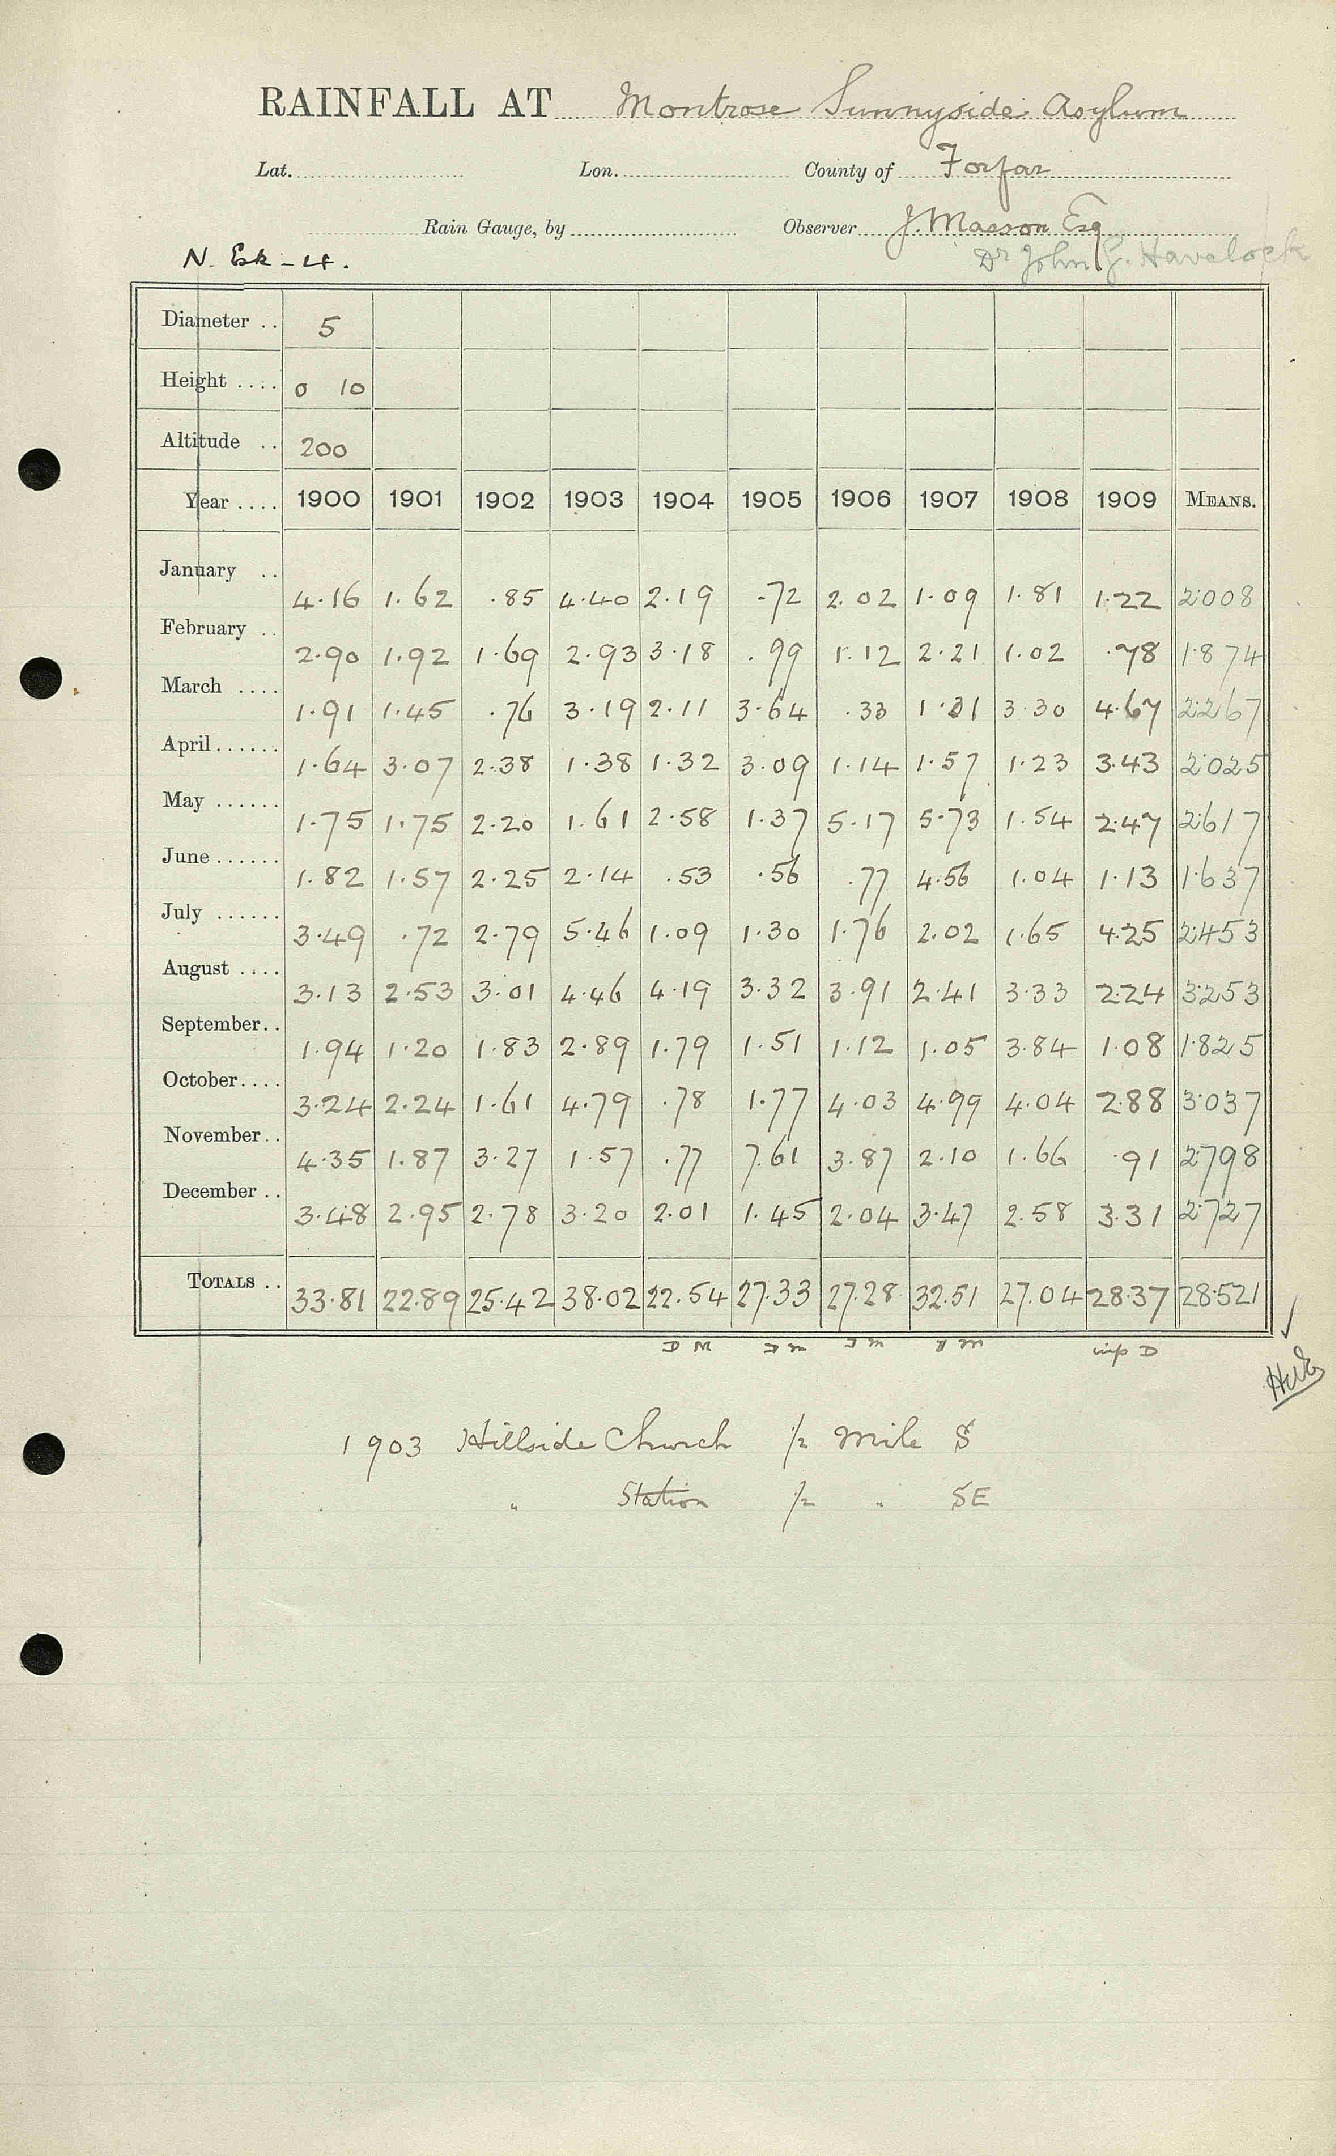 RAINFALL AT Montrose Sunnyside Asylum
Lat. Lon. County of Forfar
Rain Gauge, by Observer J. Masson Esq
N. Esk - 4. Dr John G. Havelock
Diameter .. 5
Height .... 0 10
Altitude .. 200
Year .... 1900 1901 1902 1903 1904 1905 1906 1907 1908 1909 MEANS.
January .. 4.16 1.62 .85 4.40 2.19 .72 2.02 1.09 1.81 1.22 2.008
February .. 2.90 1.92 1.69 2.93 3.18 .99 1.12 2.21 1.02 .78 1.874
March .... 1.91 1.45 .76 3.19 2.11 3.64 .33 1.31 3.30 4.67 2.267
April...... 1.64 3.07 2.38 1.38 1.32 3.09 1.14 1.57 1.23 3.43 2.025
May ...... 1.75 1.75 2.20 1.61 2.58 1.37 5.17 5.73 1.54 2.47 2.617
June ...... 1.82 1.57 2.25 2.14 .53 .56 .77 4.56 1.04 1.13 1.637
July ...... 3.49 .72 2.79 5.46 1.09 1.30 1.76 2.02 1.65 4.25 2.453
August .... 3.13 2.53 3.01 4.46 4.19 3.32 3.91 2.41 3.33 2.24 3.253
September.. 1.94 1.20 1.83 2.89 1.79 1.51 1.12 1.05 3.84 1.08 1.825
October.... 3.24 2.24 1.61 4.79 .78 1.77 4.03 4.99 4.04 2.88 3.037
November.. 4.35 1.87 3.27 1.57 .77 7.61 3.87 2.10 1.66 .91 2.798
December .. 3.48 2.95 2.78 3.20 2.01 1.45 2.04 3.47 2.58 3.31 2.727
TOTALS .. 33.81 22.89 25.42 38.02 22.54 27.33 27.28 32.51 27.04 28.37 28.521
D M
1903 Hillside Church ½ Mile S
" Station ½ " SE